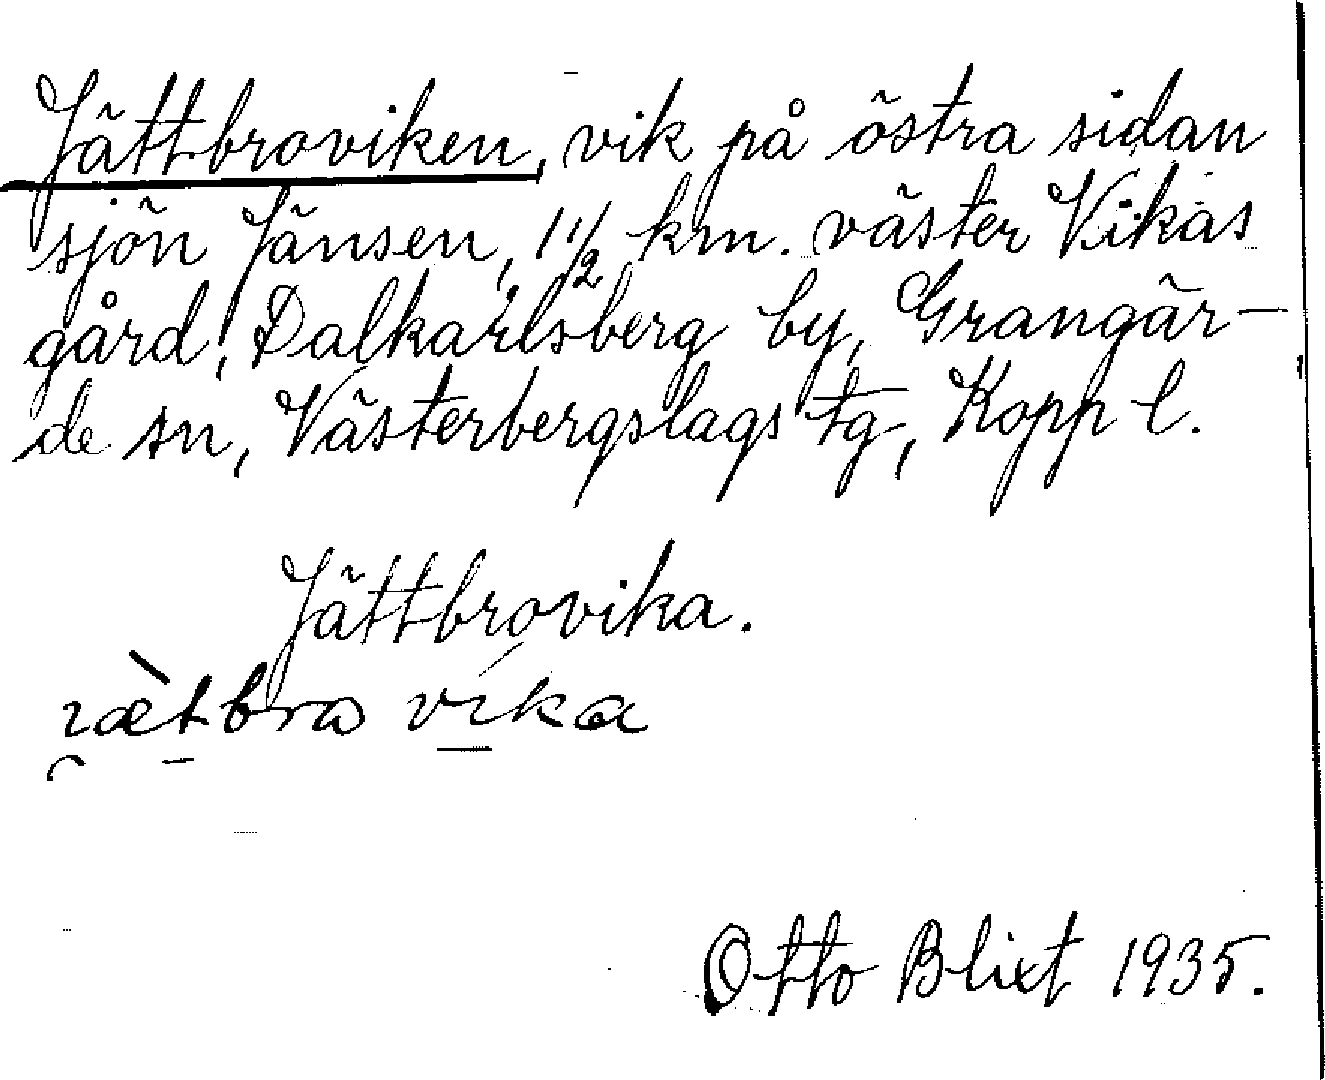 Jättbroviken, vik på östra sidan
sjön Jänsen, 1 1/2 km. väster Vikas
gård, Dalkarlsberg by, Grangär-
de sn, Västerbergslags tg, Kopp l.
Jättbrovika.
Otto Blixt 1935.